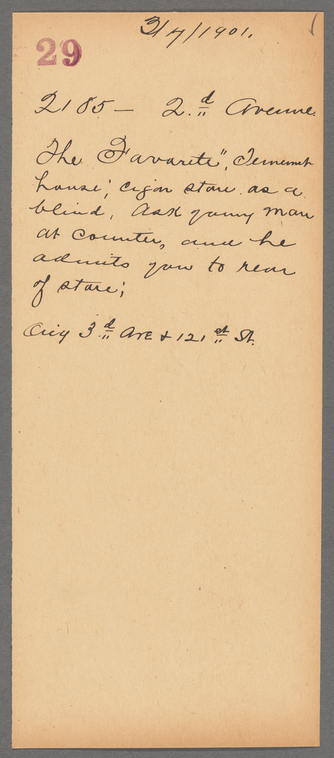 3/7/1901.
29
2185 - 2.d Avenue.
The "Favorite", Tenement
house; cigar store as a
blind. Ask young man
at counter, and he
admits you to rear
of store;
3d Ave + 121st St.